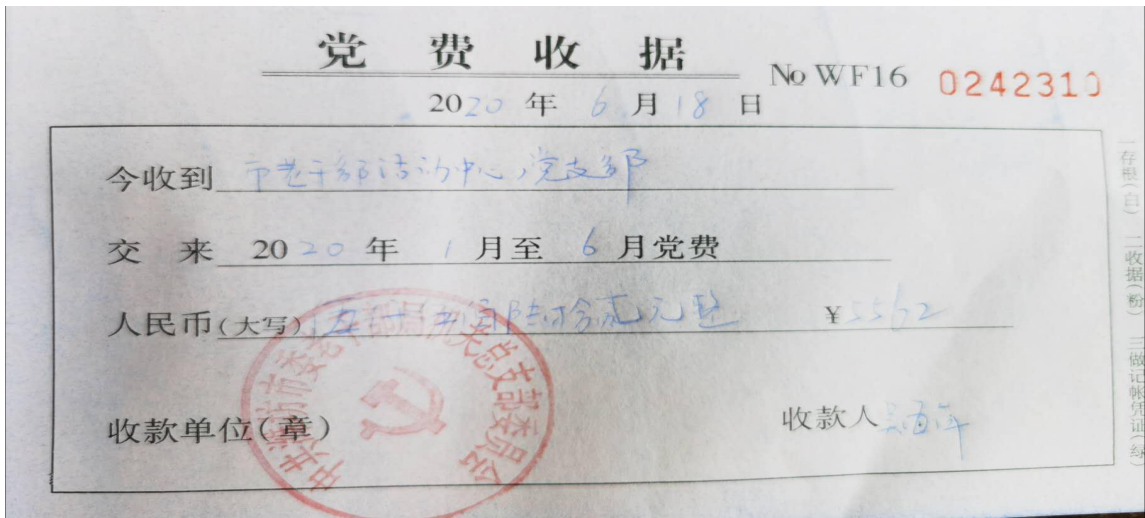 党费收据
No WF16 0242310
2020年6月18日
今收到 市老干部活动中心党支部
交来 2020年1月至6月党费
人民币(大写) 伍仟伍佰陆拾贰元整 ¥5562
收款单位(章)
收款人
中共潍坊市委老干部局机关总支部委员会
一存根(白) 二收据(粉) 三做记帐凭证(绿)